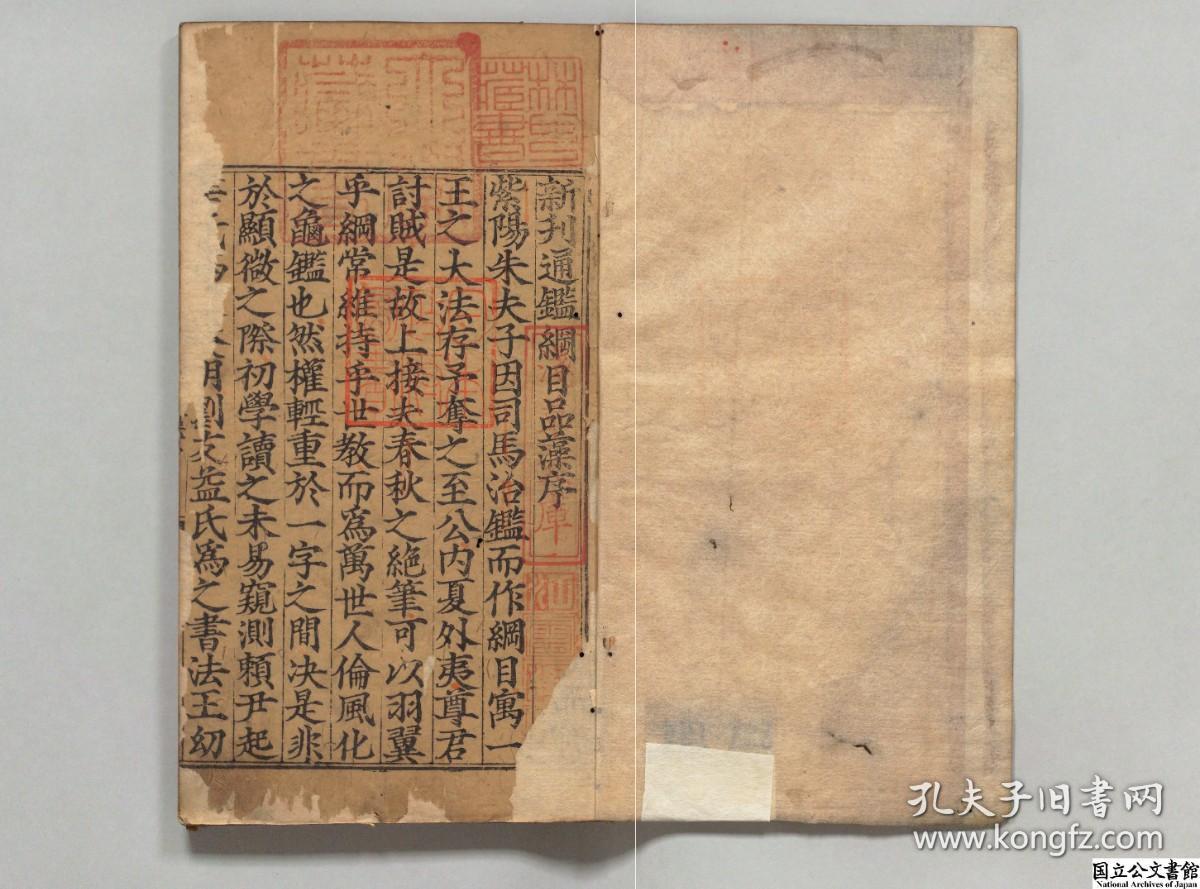 新刋通鑑綱目品藻序
紫陽朱夫子因司馬治鑑而作綱目寓一
王之大法存予奪之至公内夏外夷尊君
討賊是故上接夫春秋之絶筆可以羽翼
乎綱常維持乎世教而爲萬世人倫風化
之龜鑑也然權輕重於一字之間决是非
於顯微之際初學讀之未易窺測頼尹起
明劉友益氏爲之書法王幼
林氏
藏書
孔夫子旧书网
www.kongfz.com
国立公文書館
National Archives of Japan